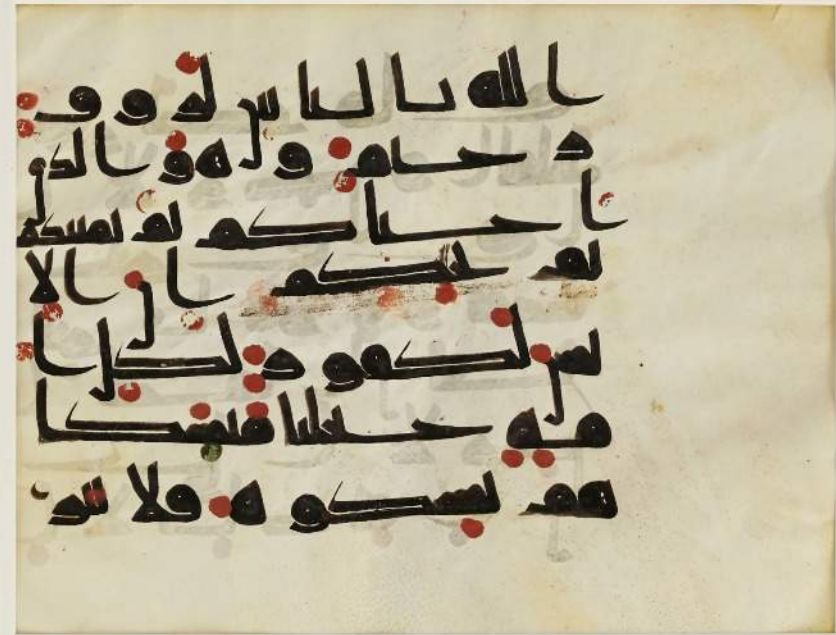 الله بالناس لروف
ر حيم وهو الذى
احياكم ثم يميتكم
ثم يحييكم ان الا
نسن لكفور لكل ا
مة جعلنا منسكا
هم نسكوه فلا ينز